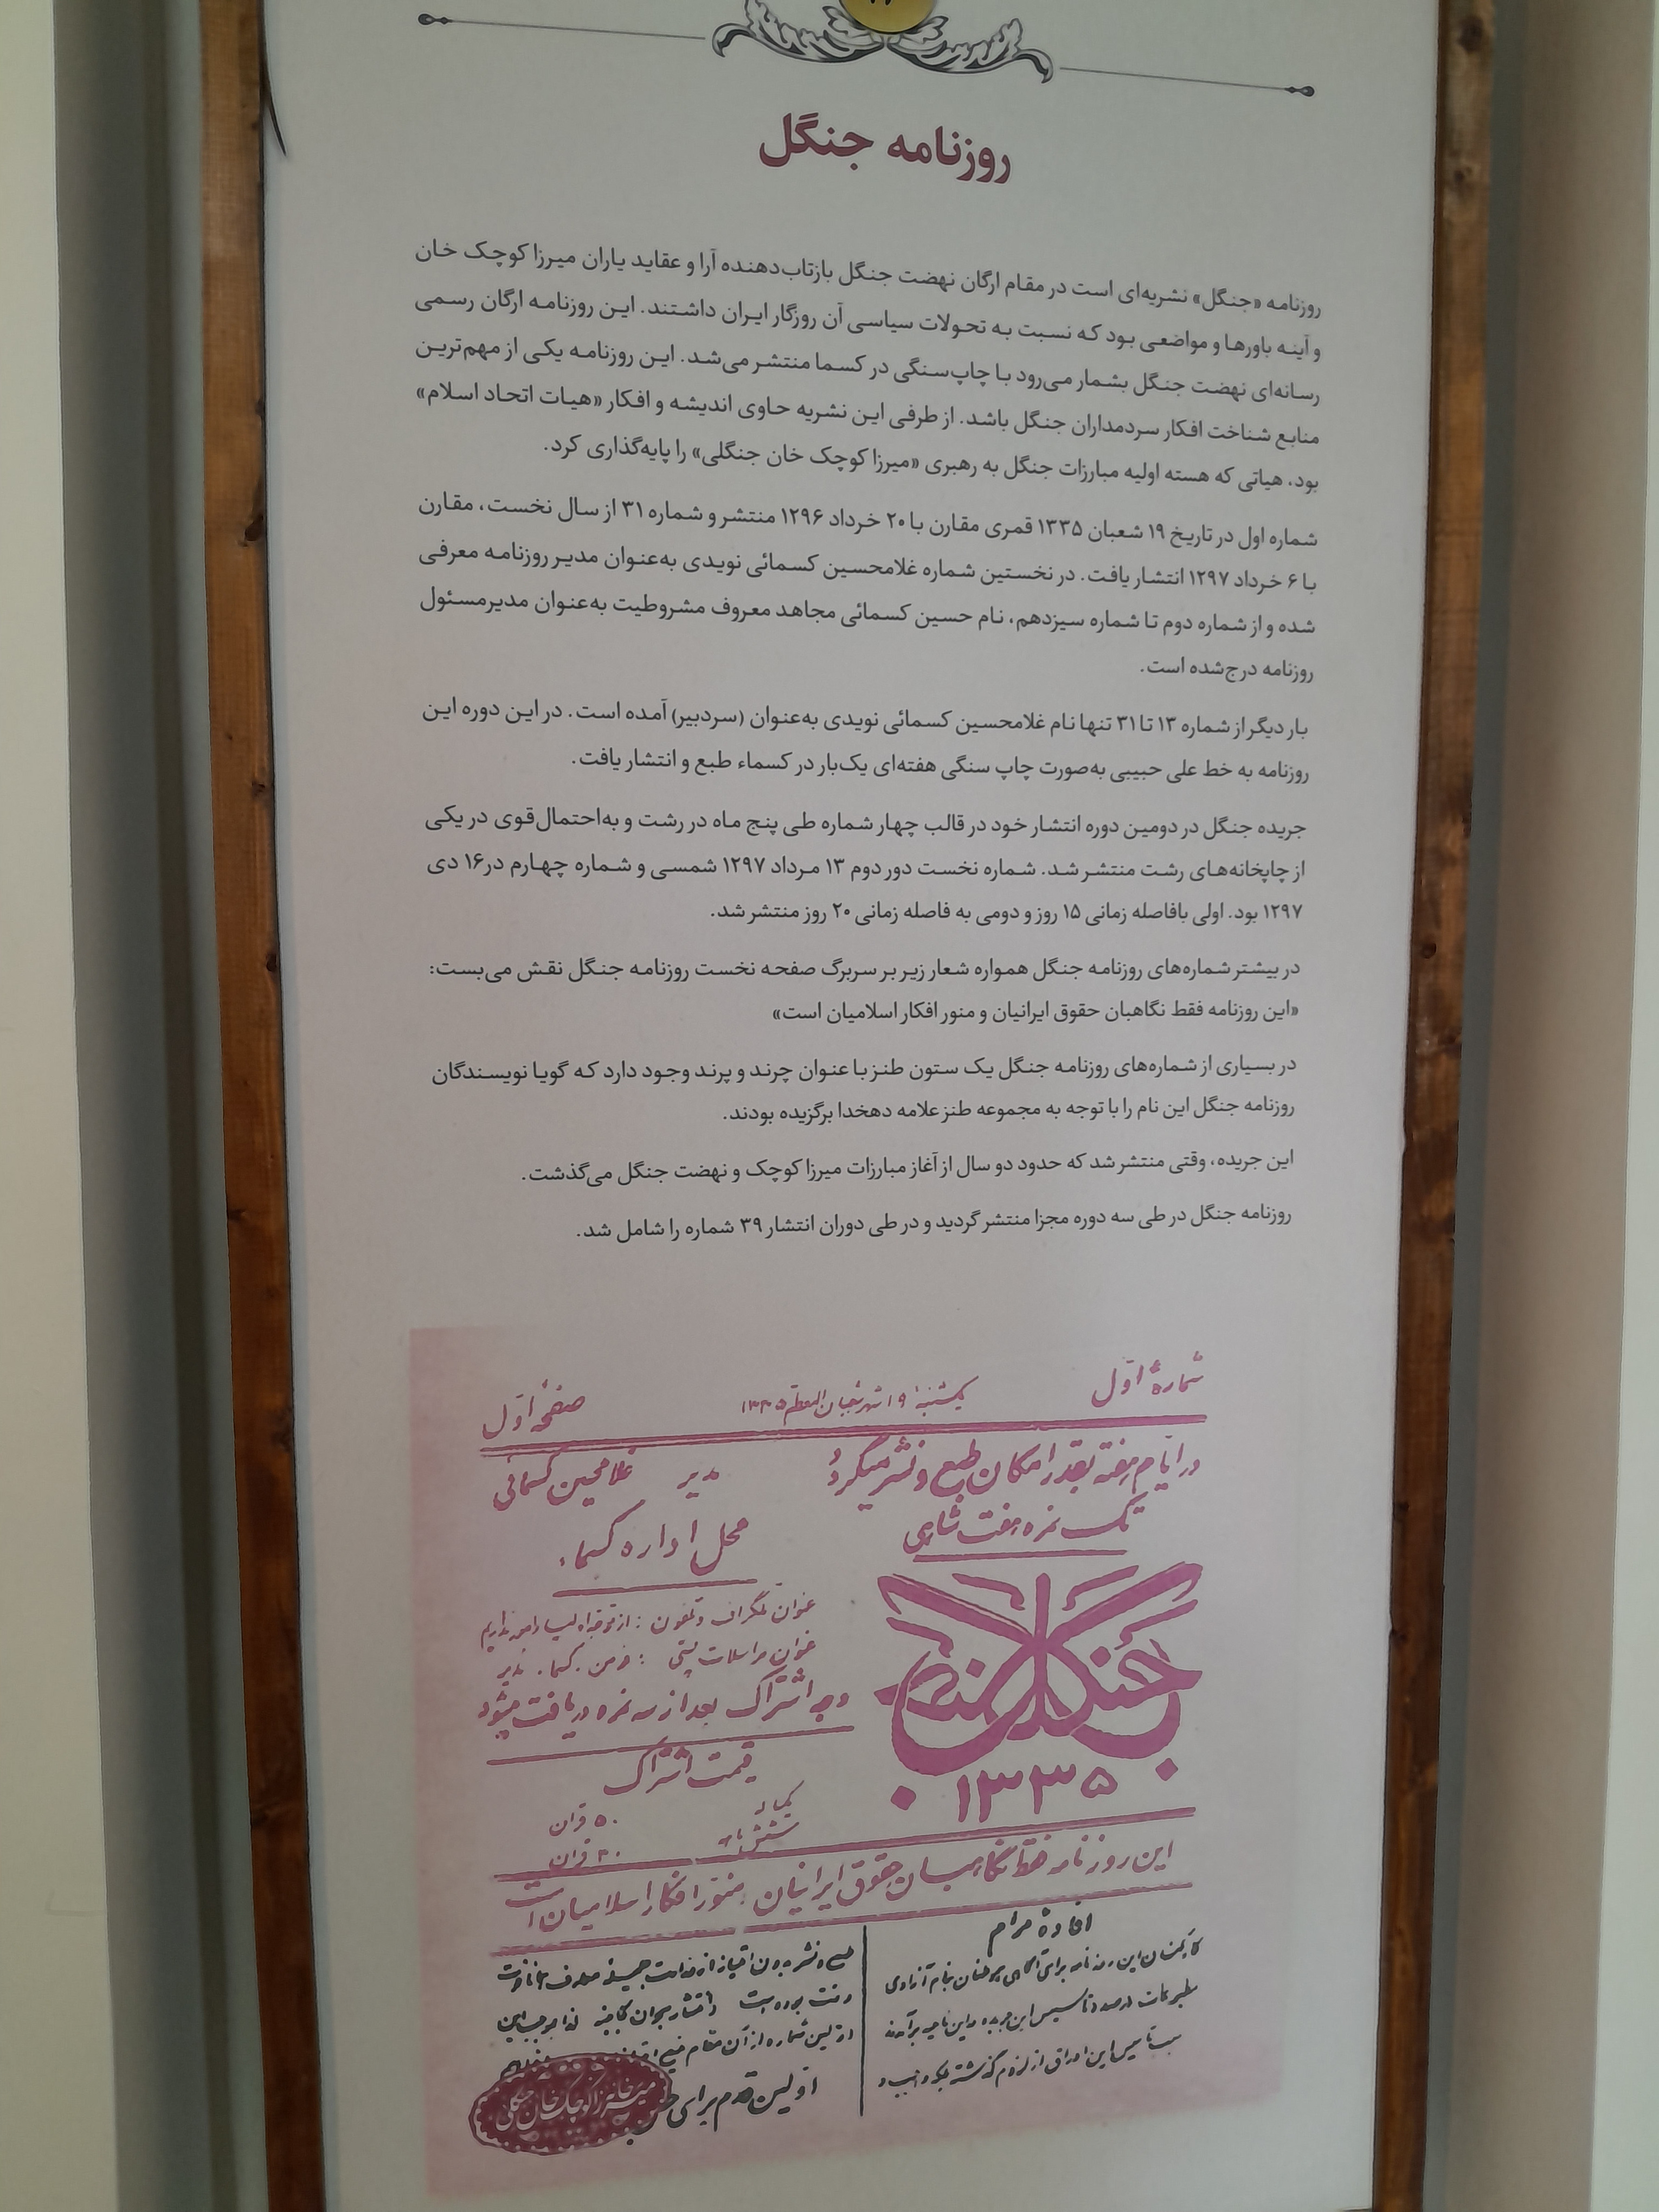 روزنامه جنگل
روزنامه «جنگل» نشریه‌ای است در مقام ارگان نهضت جنگل بازتاب‌دهنده آرا و عقاید یاران میرزا کوچک خان
و آینه باورها و مواضعی بود که نسبت به تحولات سیاسی آن روزگار ایران داشتند. این روزنامه ارگان رسمی
رسانه‌ای نهضت جنگل بشمار می‌رود با چاپ‌سنگی در کسما منتشر می‌شد. این روزنامه یکی از مهم‌ترین
منابع شناخت افکار سردمداران جنگل باشد. از طرفی این نشریه حاوی اندیشه و افکار «هیات اتحاد اسلام»
بود. هیاتی که هسته اولیه مبارزات جنگل به رهبری «میرزا کوچک خان جنگلی» را پایه‌گذاری کرد.
شماره اول در تاریخ ۱۹ شعبان ۱۳۳۵ قمری مقارن با ۲۰ خرداد ۱۲۹۶ منتشر و شماره ۳۱ از سال نخست، مقارن
با ۶ خرداد ۱۲۹۷ انتشار یافت. در نخستین شماره غلامحسین کسمائی نویدی به‌عنوان مدیر روزنامه معرفی
شده و از شماره دوم تا شماره سیزدهم، نام حسین کسمائی مجاهد معروف مشروطیت به‌عنوان مدیرمسئول
روزنامه درج‌شده است.
بار دیگر از شماره ۱۳ تا ۳۱ تنها نام غلامحسین کسمائی نویدی به‌عنوان (سردبیر) آمده است. در این دوره این
روزنامه به خط علی حبیبی به‌صورت چاپ سنگی هفته‌ای یک‌بار در کسماء طبع و انتشار یافت.
جریده جنگل در دومین دوره انتشار خود در قالب چهار شماره طی پنج ماه در رشت و به‌احتمال‌قوی در یکی
از چاپخانه‌های رشت منتشر شد. شماره نخست دور دوم ۱۳ مرداد ۱۲۹۷ شمسی و شماره چهارم در۱۶ دی
۱۲۹۷ بود. اولی بافاصله زمانی ۱۵ روز و دومی به فاصله زمانی ۲۰ روز منتشر شد.
در بیشتر شماره‌های روزنامه جنگل همواره شعار زیر بر سربرگ صفحه نخست روزنامه جنگل نقش می‌بست:
«این روزنامه فقط نگاهبان حقوق ایرانیان و منور افکار اسلامیان است»
در بسیاری از شماره‌های روزنامه جنگل یک ستون طنز با عنوان چرند و پرند وجود دارد که گویا نویسندگان
روزنامه جنگل این نام را با توجه به مجموعه طنز علامه دهخدا برگزیده بودند.
این جریده، وقتی منتشر شد که حدود دو سال از آغاز مبارزات میرزا کوچک و نهضت جنگل می‌گذشت.
روزنامه جنگل در طی سه دوره مجزا منتشر گردید و در طی دوران انتشار ۳۹ شماره را شامل شد.
شمارهٔ اوّل
یکشنبه ۱۹ شهر شعبان المعظم ۱۳۳۵
صفحهٔ اوّل
در ایّام هفته بقدر امکان طبع و نشر میگردد
تک نمره هفت شاهی
مدیر غلامحسین کسمائی
محل اداره کسماء
عنوان تلگراف و تلفون :
عنوان مراسلات پستی :
وجه اشتراک بعد از سه نمره دریافت میشود
جنگل
۱۳۳۵
قیمت اشتراک
یکساله ۵۰ قران
ششماهه ۳۰ قران
این روزنامه فقط نگاهبان حقوق ایرانیان و منوّر افکار اسلامیان است
افادهٔ مرام
کارکنان این روزنامه برای آگاهی هموطنان بنام آزادی
اوّلین قدم برای
میرزا کوچک خان جنگلی